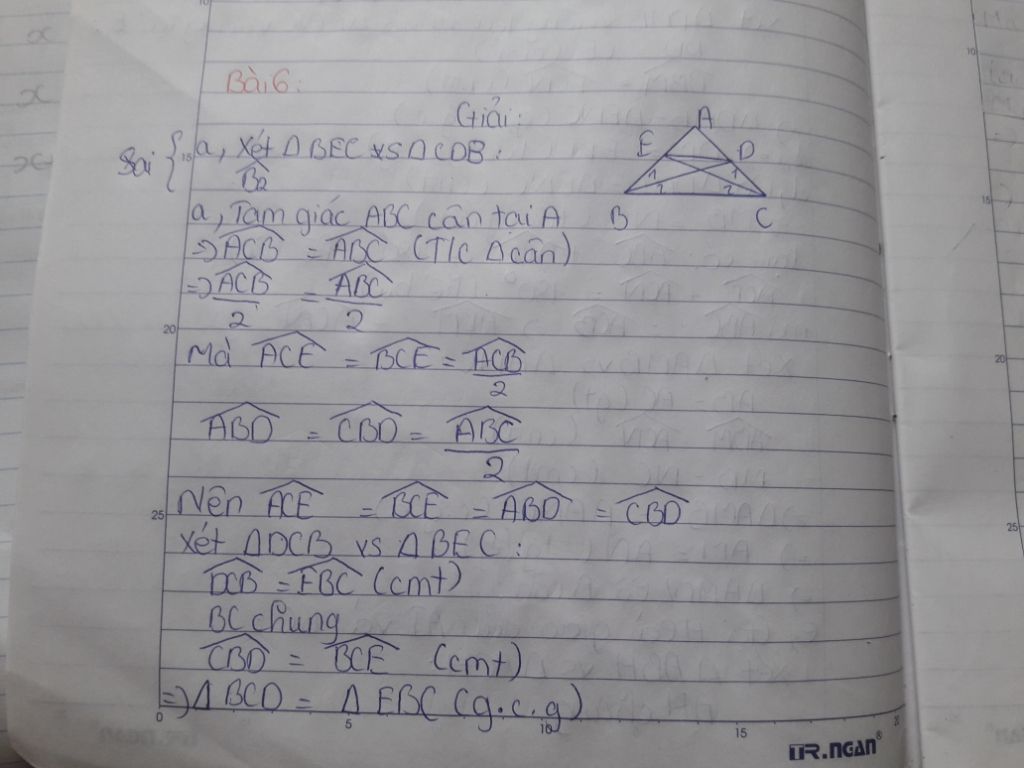 Bài 6:
Giải:
Sai { a, Xét Δ BEC vs Δ CDB:
B̂2
A
E D
1 1
2 2
B C
a, Tam giác ABC cân tại A
=> ACB = ABC (T/C Δ cân)
=> ACB/2 = ABC/2
Mà ACE = BCE = ACB/2
ABD = CBD = ABC/2
Nên ACE = BCE = ABD = CBD
Xét ΔDCB vs Δ BEC:
DCB = EBC (cmt)
BC chung
CBD = BCE (cmt)
=> Δ BCD = Δ EBC (g.c.g)
0 5 10 15 20
TR.NGAN®
10
15
20
25
15
20
25